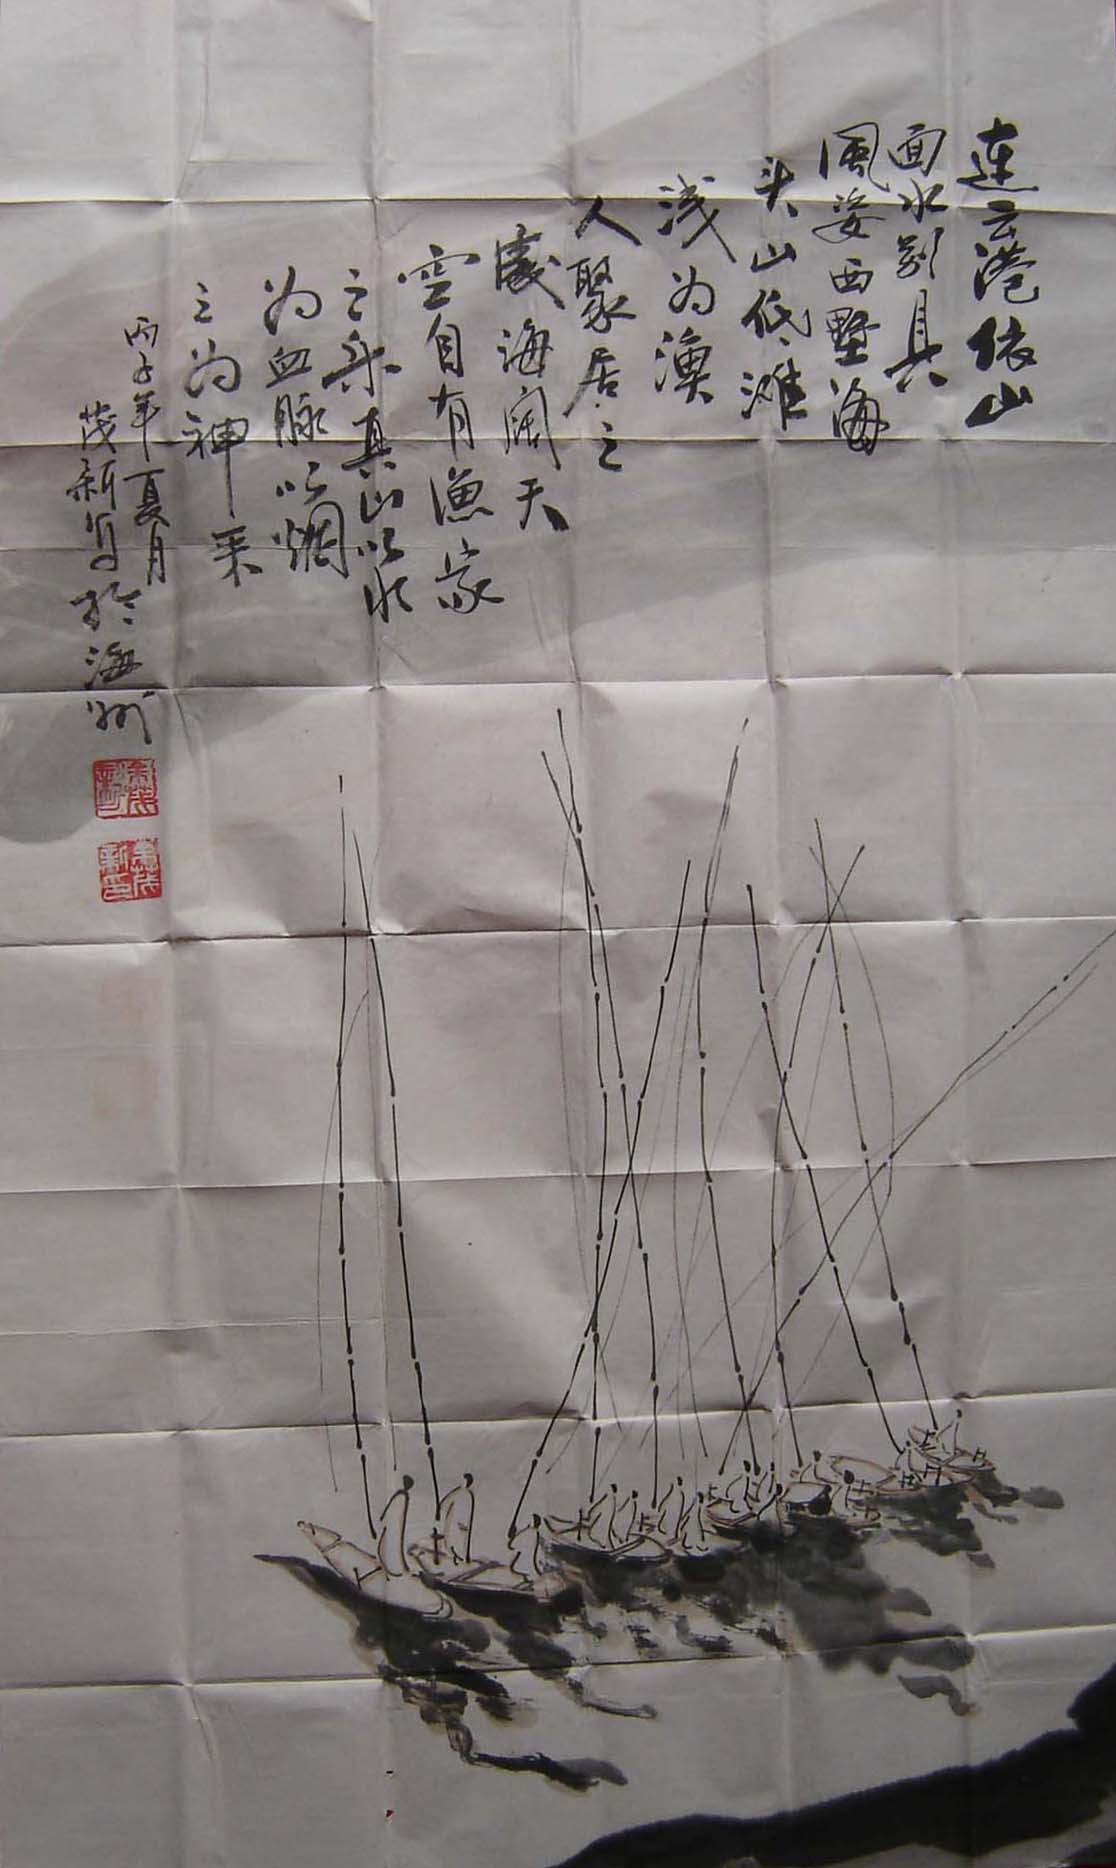 连云港依山
面水别具
风姿西墅海
头山低滩
浅为渔
人聚居之
域海阔天
空自有渔家
之乐真山以水
为血脉以烟
云为神采
丙子年夏月
茂新写于海州